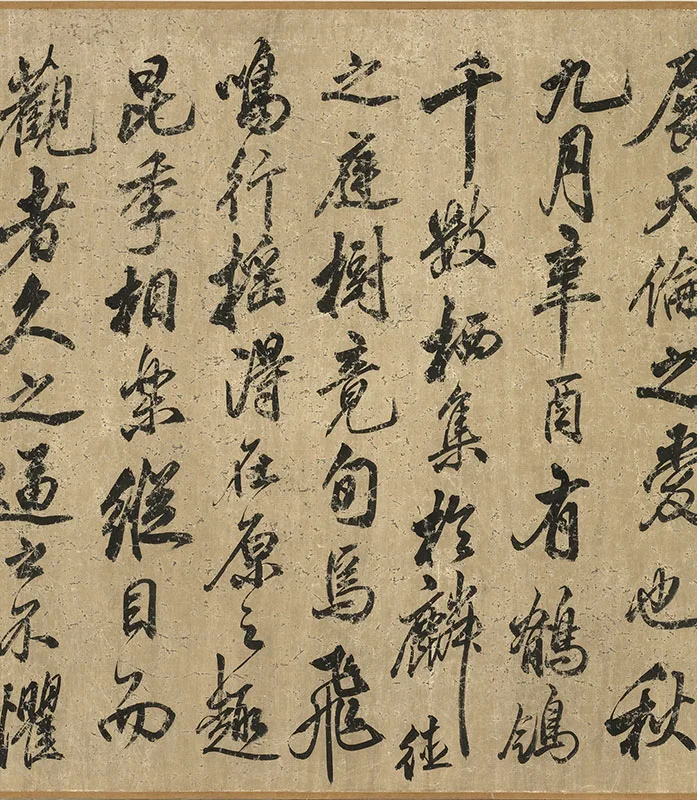 展天倫之愛也秋
九月辛酉有鶺鴒
千數栖集於麟德
之庭樹竟旬焉飛
鳴行搖得在原之趣
昆季相樂縱目而
觀者久之逼之不懼